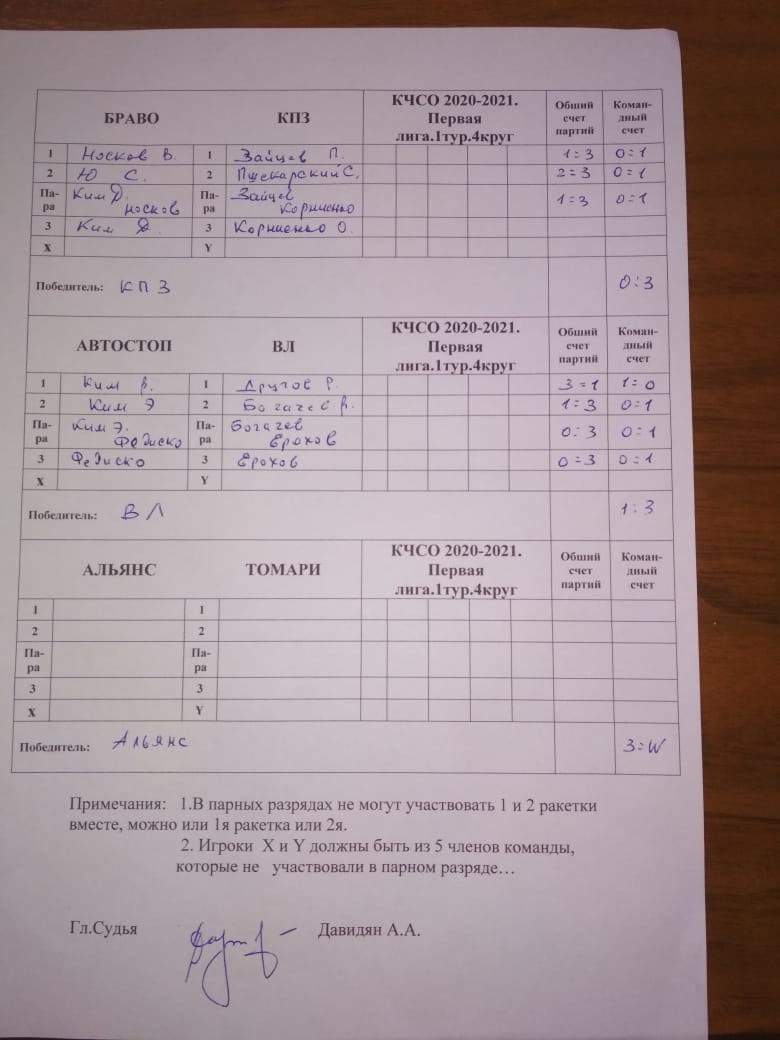 БРАВО КПЗ КЧСО 2020-2021. Общий Коман-
Первая счет дный
лига.1тур.4круг партий счет
1 Носков В. 1 Зайцев П. 1=3 0=1
2 Ю С. 2 Пшекарский С. 2=3 0=1
Па- Ким Д. Па- Зайцев 1=3 0=1
ра Носков ра Корниенко
3 Ким Д. 3 Корниенко О.
X Y
Победитель: КПЗ 0:3
АВТОСТОП ВЛ КЧСО 2020-2021. Общий Коман-
Первая счет дный
лига.1тур.4круг партий счет
1 Ким В. 1 Другов Р. 3=1 1=0
2 Ким Э 2 Богачев В. 1=3 0=1
Па- Ким Э. Па- Богачев 0:3 0=1
ра Федиско ра Ерохов
3 Федиско 3 Ерохов 0=3 0=1
X Y
Победитель: ВЛ 1:3
АЛЬЯНС ТОМАРИ КЧСО 2020-2021. Общий Коман-
Первая счет дный
лига.1тур.4круг партий счет
1 1
2 2
Па- Па-
ра ра
3 3
X Y
Победитель: Альянс 3=W
Примечания: 1.В парных разрядах не могут участвовать 1 и 2 ракетки
вместе, можно или 1я ракетка или 2я.
2. Игроки X и Y должны быть из 5 членов команды,
которые не участвовали в парном разряде…
Гл.Судья Давидян А.А.